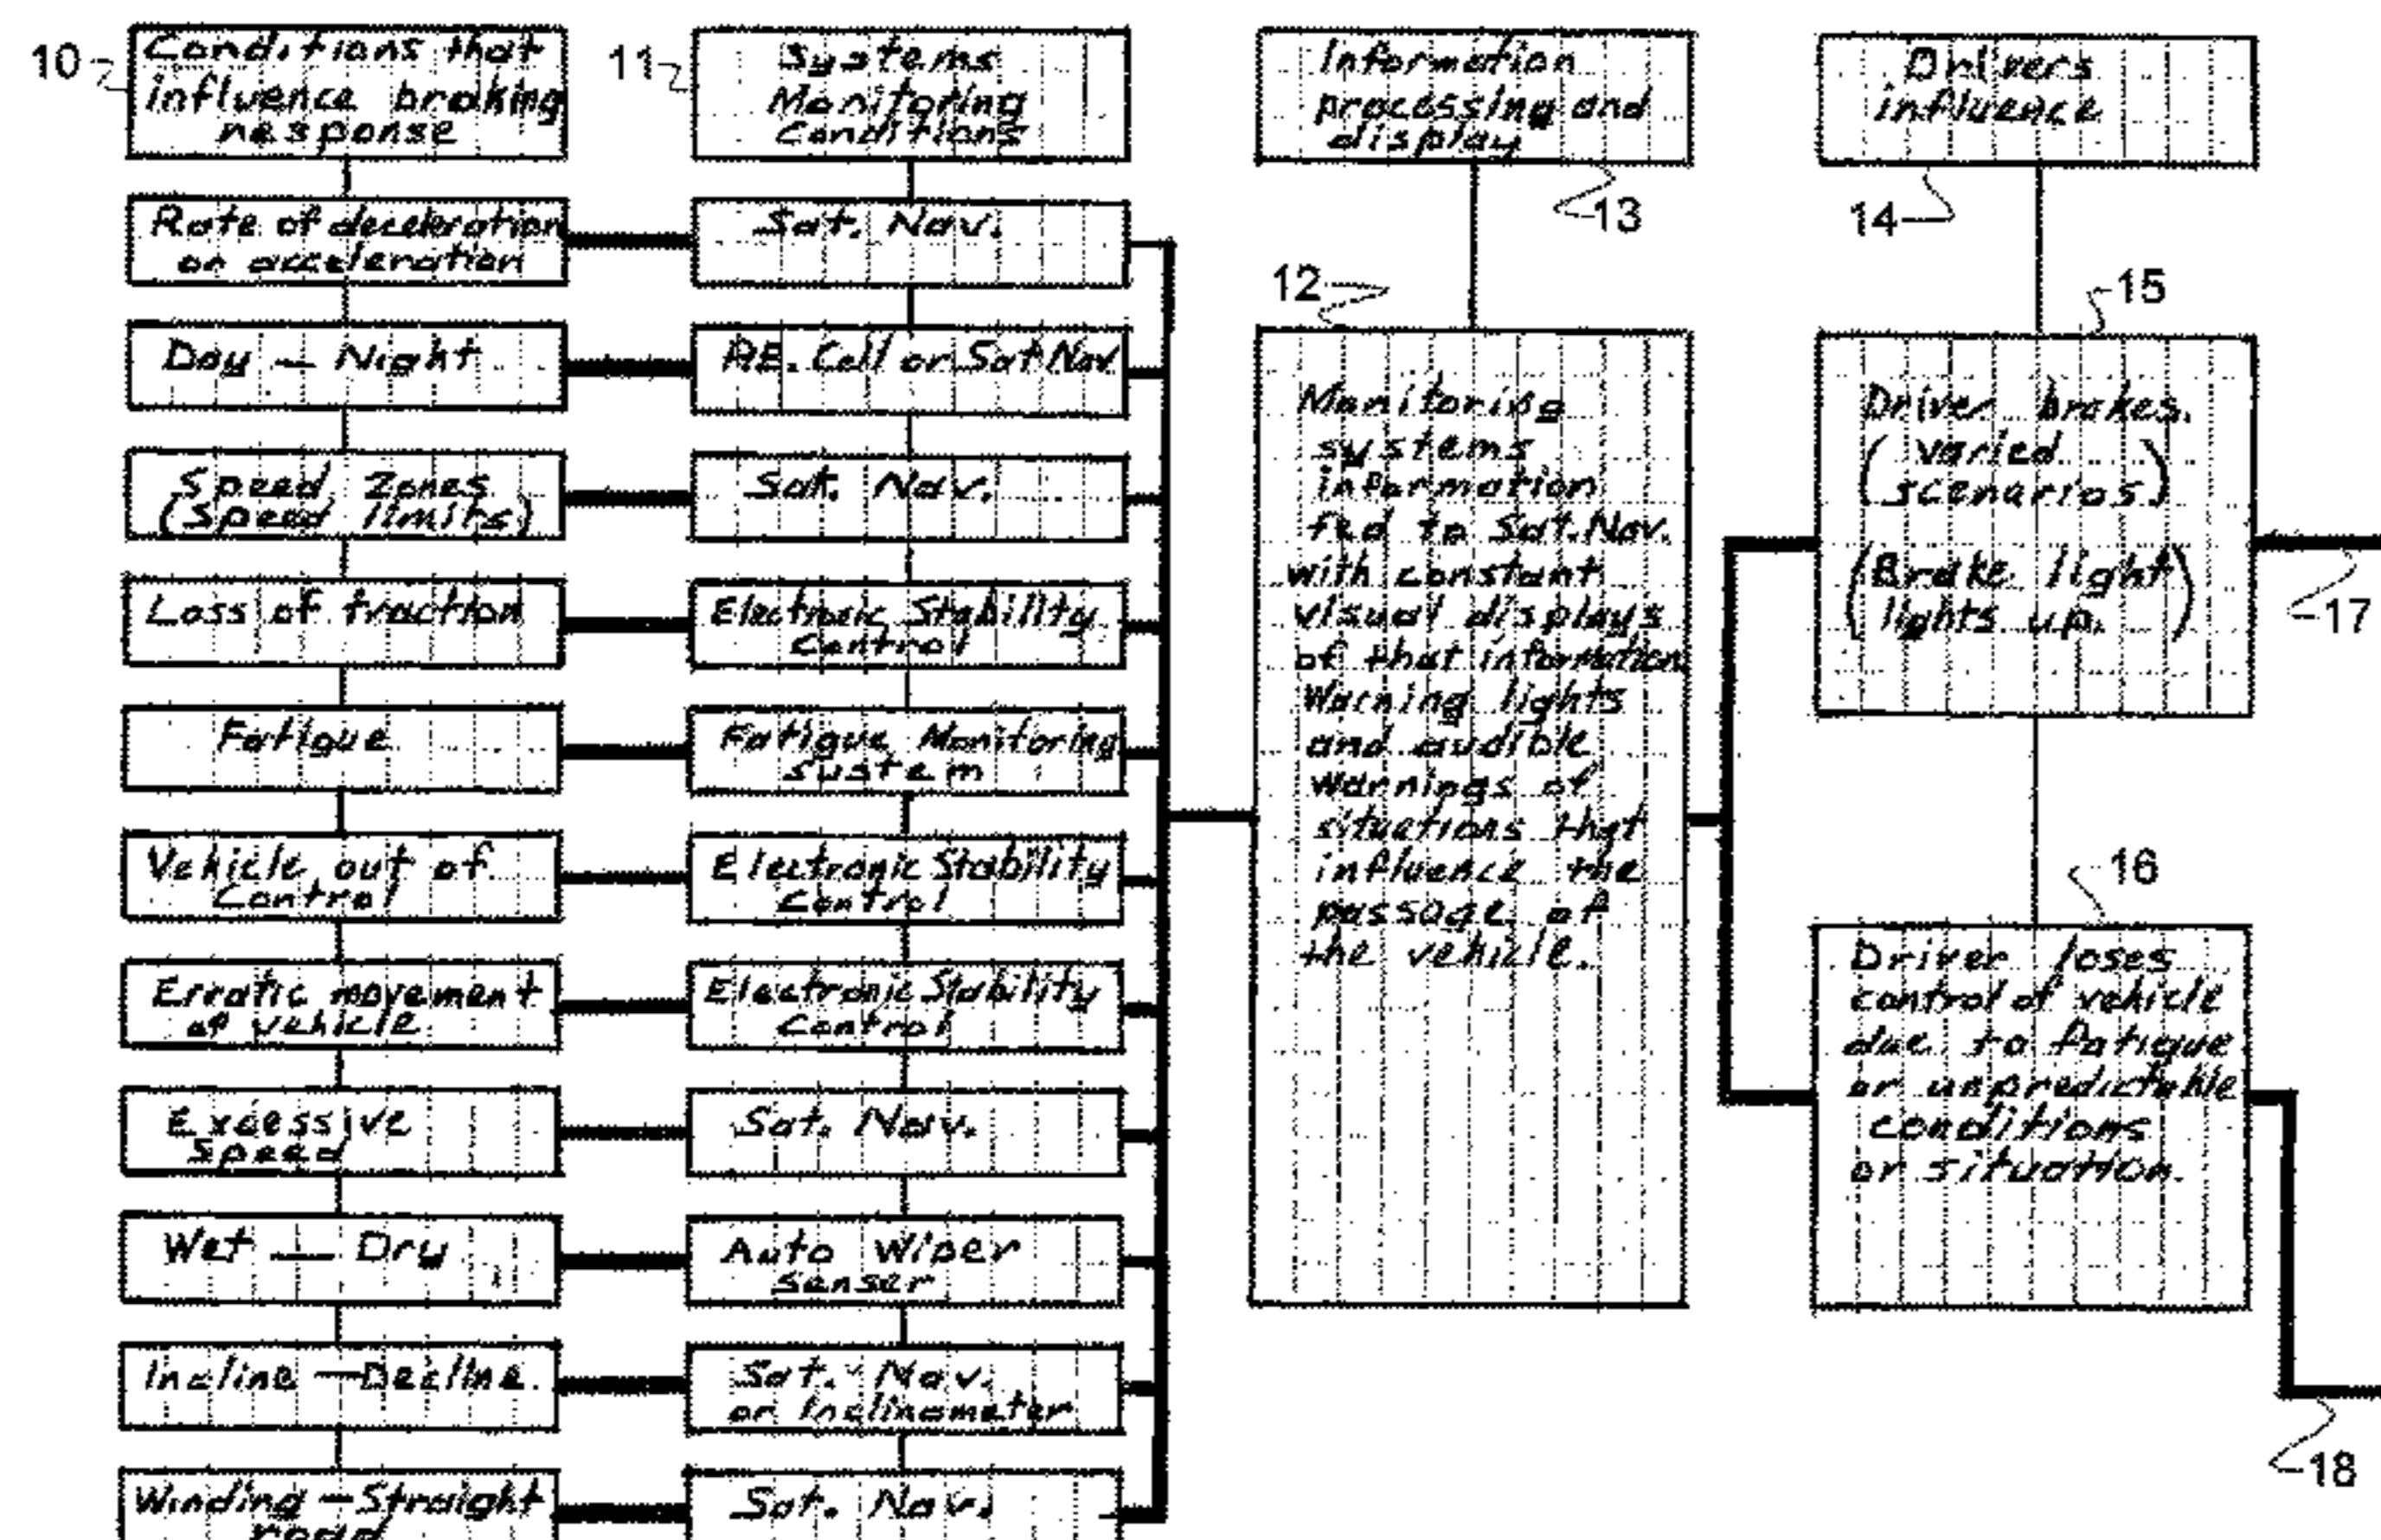 10
Conditions that
influence braking
response
Rate of deceleration
or acceleration
Day — Night
Speed Zones
(Speed limits)
Loss of traction
Fatigue
Vehicle out of
Control
Erratic movement
of vehicle
Excessive
Speed
Wet — Dry
Incline — Decline.
Winding — Straight
road
11
Systems
Monitoring
Conditions
Sat. Nav.
P.E. Cell or Sat Nav
Sat. Nav.
Electronic Stability
Control
Fatigue Monitoring
system
Electronic Stability
Control
Electronic Stability
Control
Sat. Nav.
Auto Wiper
senser
Sat. Nav.
or Inclinometer
Sat. Nav.
Information
processing and
display
13
12
Monitoring
systems
information
fed to Sat. Nav.
with constant
visual displays
of that information
Warning lights
and audible
warnings of
situations that
influence the
passage of
the vehicle.
Drivers
influence
14
15
Driver brakes.
(varied
scenarios)
(Brake light
lights up.)
17
16
Driver loses
control of vehicle
due to fatigue
or unpredictable
conditions
or situation.
18